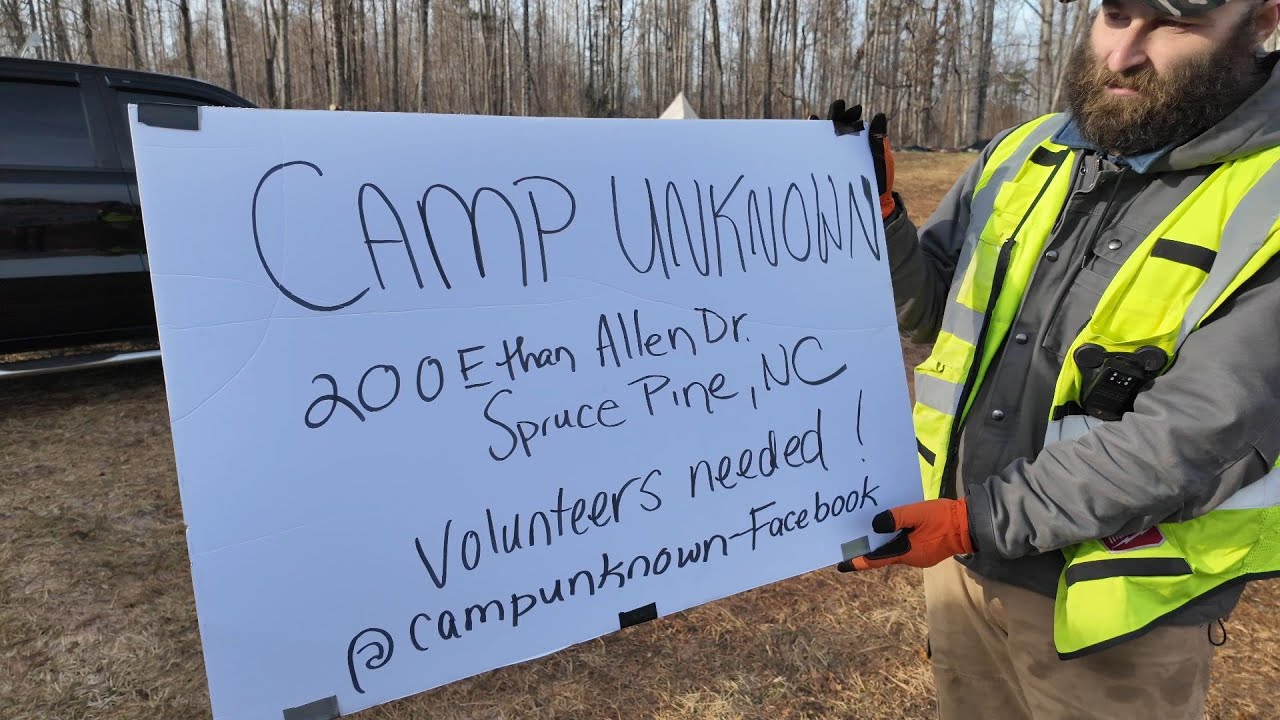 CAMP UNKNOWN
200 Ethan Allen Dr.
Spruce Pine, NC
Volunteers needed!
@campunknown-Facebook